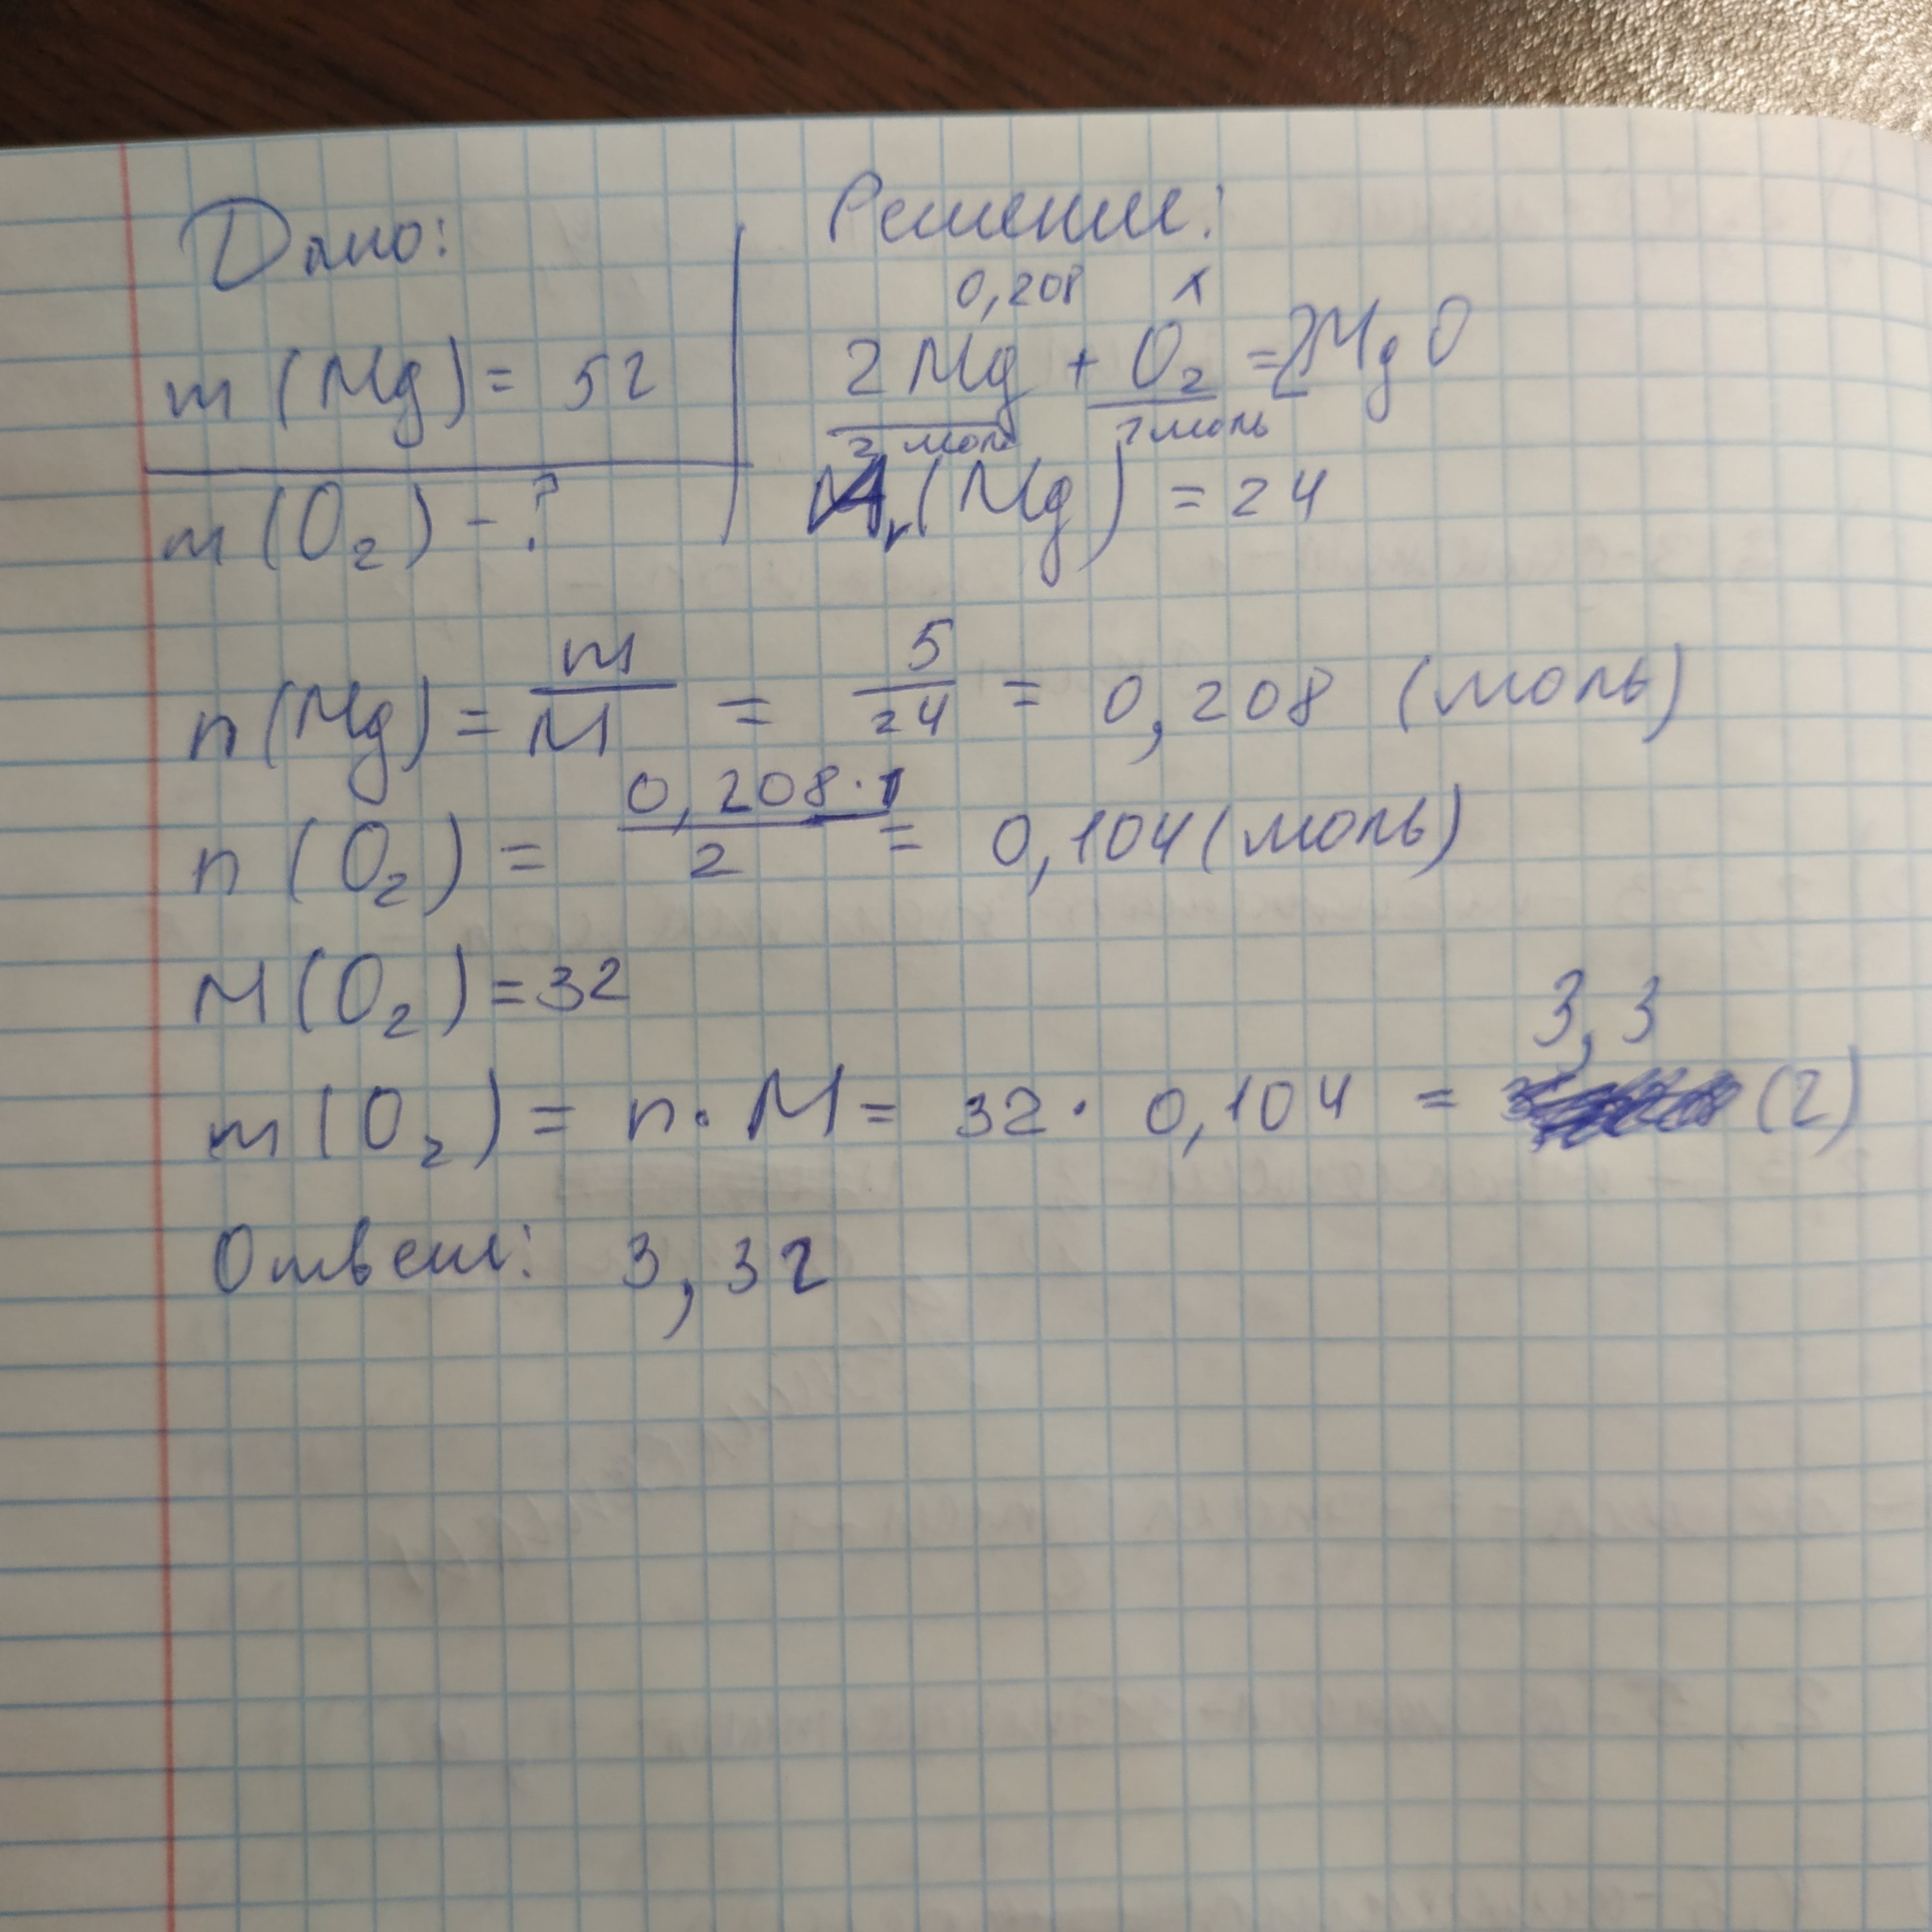 Дано:
m (Mg) = 5г
m (O₂) - ?
Решение:
0,208 x
2Mg + O₂ = 2MgO
2 моль 1 моль
Ar(Mg) = 24
n(Mg) = m/M = 5/24 = 0,208 (моль)
n(O₂) = 0,208·1/2 = 0,104 (моль)
M(O₂) = 32
m(O₂) = n·M = 32·0,104 = 3,3 (г)
Ответ: 3,3г